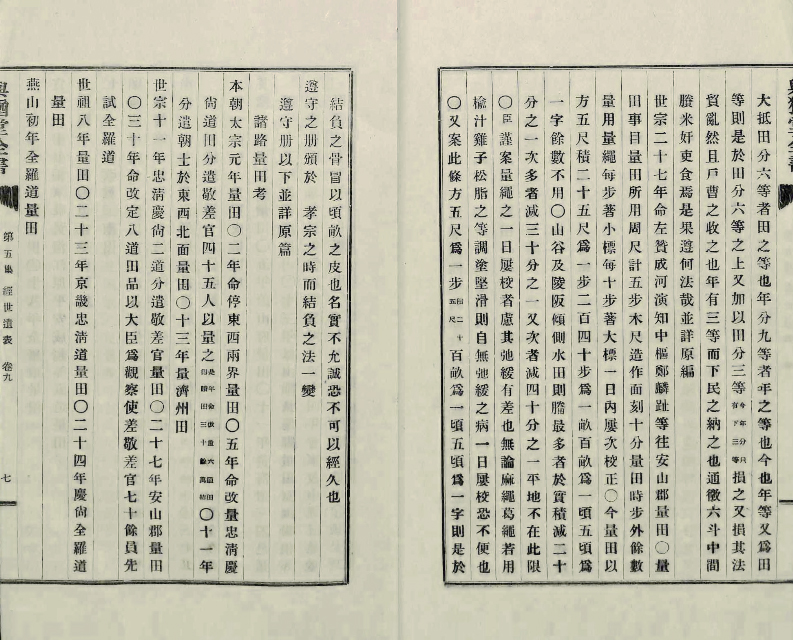 大抵田分六等者田之等也年分九等者年之等也今也年等又爲田
等則是於田分六等之上又加以田分三等今年分只有下三等損之又損其法
貿亂然且戶曹之收之也年有三等而下民之納之也通徵六斗中間
賸米奸吏食焉是果遵何法哉並詳原編
世宗二十七年命左贊成河演知中樞鄭麟趾等往安山郡量田〇量
田事目量田所用周尺計五步木尺造作面刻十分量田時步外餘數
量用量繩每步著小標每十步著大標一日內屢次校正〇今量田以
方五尺積二十五尺爲一步二百四十步爲一畝百畝爲一頃五頃爲
一字餘數不用〇山谷及陵阪傾側水田則賸最多者於實積減二十
分之一次多者減三十分之一又次者減四十分之一平地不在此限
〇臣謹案量繩之一日屢校者慮其弛緩有差也無論麻繩葛繩若用
榆汁雞子松脂之等調塗堅滑則自無弛緩之病一日屢校恐不便也
〇又案此條方五尺爲一步積二十五尺百畝爲一頃五頃爲一字則是於
結負之骨冒以頃畝之皮也名實不允誠恐不可以經久也
遵守之册頒於 孝宗之時而結負之法一變
遵守册以下並詳原篇
諸路量田考
本朝太宗元年量田〇二年命停東西兩界量田〇五年命改量忠淸慶
尙道田分遣敬差官四十五人以量之〇十一年
分遣朝士於東西北面量田〇十三年量濟州田
世宗十一年忠淸慶尙二道分遣敬差官量田〇二十七年安山郡量田
〇三十年命改定八道田品以大臣爲觀察使差敬差官七十餘員先
試全羅道
世祖八年量田〇二十三年京畿忠淸道量田〇二十四年慶尙全羅道
量田
燕山初年全羅道量田
第五集 經世遺表 卷九
七